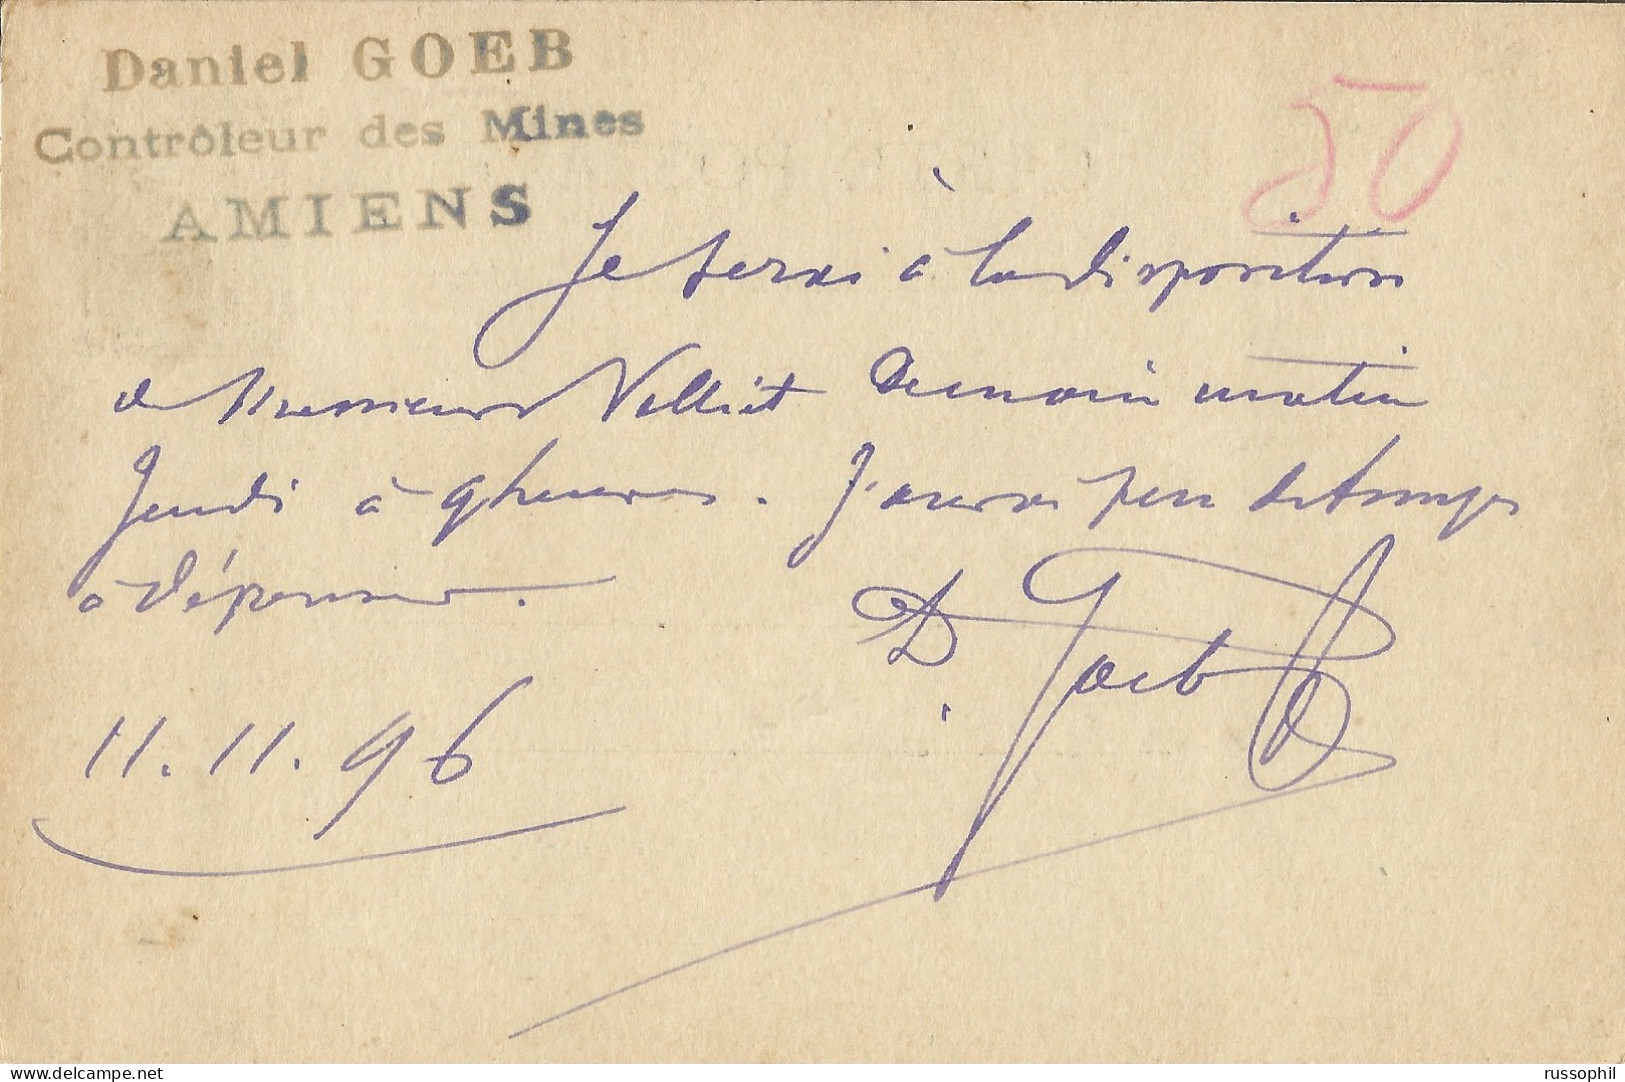 Daniel GOEB
Contrôleur des Mines
AMIENS
50
Je serai à la disposition
de Monsieur Velliet demain matin
Jeudi à 9 heures. J'aurai peu de temps
à dépenser.
D. Goeb
11.11.96
russophil
www.delcampe.net